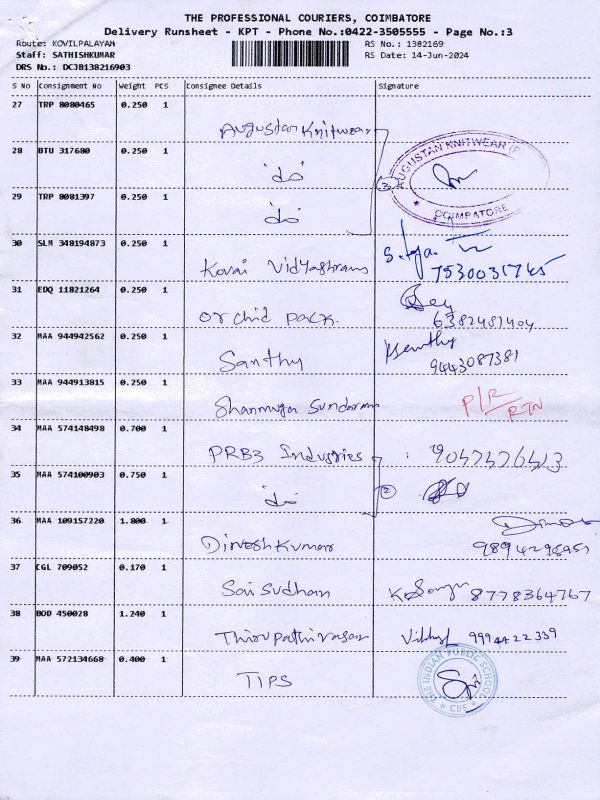 THE PROFESSIONAL COURIERS, COIMBATORE
Delivery Runsheet - KPT - Phone No.:0422-3505555 - Page No.:3
Route: KOVILPALAYAM RS No.: 1382169
Staff: SATHISHKUMAR RS Date: 14-Jun-2024
DRS No.: DCJB138216903
S No Consignment No Weight PCS Consignee Details Signature
27 TRP 8080465 0.250 1
Augustan Knitwear
28 BTU 317680 0.250 1
do
AUGUSTAN KNITWEAR (P)
COIMBATORE
3
29 TRP 8081397 0.250 1
do
30 SLM 348194873 0.250 1
Kovai Vidyashram 7530031745
31 EDQ 11821264 0.250 1
Orchid Pack. 6382481404
32 MAA 944942562 0.250 1
Santhy 9443087381
33 MAA 944913815 0.250 1
Shanmuga Sundaram P/R RTN
34 MAA 574148498 0.700 1
PRB3 Industries :
35 MAA 574100903 0.750 1
do 2
36 MAA 109157220 1.800 1
Dinesh Kumar
37 CGL 709052 0.170 1
Sai Sudhan 8778364767
38 BOD 450028 1.240 1
Thirupathi Nagar 9994422339
39 MAA 572134668 0.400 1
TIPS
THE INDIAN PUBLIC SCHOOL
CBE